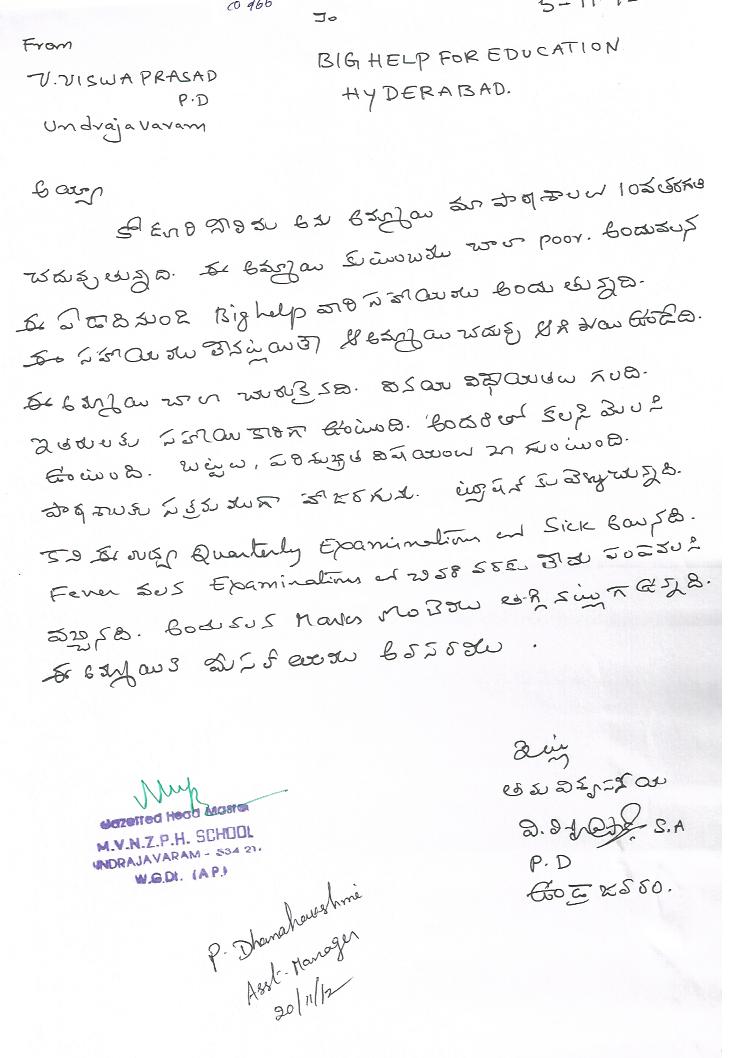 CO 466
To
From
V.VISWA PRASAD
P.D
Undrajavaram
BIG HELP FOR EDUCATION
HYDERABAD.
అయ్యా
అను అమ్మాయి మా పాఠశాలలో 10వ తరగతి
చదువుతున్నది. ఈ అమ్మాయి కుటుంబము చాలా poor. అందువలన
ఈ ఏడాది నుండి Big help వారి సహాయము అందుతున్నది.
ఈ సహాయము లేనట్లయితే ఈ అమ్మాయి చదువు ఆగిపోయి ఉండేది.
ఈ అమ్మాయి చాలా చురుకైనది. వినయ విధేయతలు గలది.
ఇతరులకు సహాయకారిగా ఉంటుంది. అందరితో కలసి మెలసి
ఉంటుంది. బట్టలు, పరిశుభ్రత విషయంలో బాగుంటుంది.
పాఠశాలకు సక్రమముగా హాజరగును. ట్యూషన్ కు వెళ్ళుచున్నది.
కాని ఈ Quarterly Examinations లో Sick అయినది.
Fever వలన Examinations లో చివరి వరకు
వచ్చినది. అందువలన Marks తగ్గినట్లుగా ఉన్నది.
ఈ అమ్మాయికి మీ సహాయము అవసరము.
ఇట్లు
తమ విశ్వసనీయ
S.A
P.D
ఉండ్రాజవరం.
Gazetted Head Master
M.V.N.Z.P.H. SCHOOL
UNDRAJAVARAM - 534 21.
W.G.Dt. (A.P.)
P. Dhanalakshmi
Asst. Manager
20/11/12